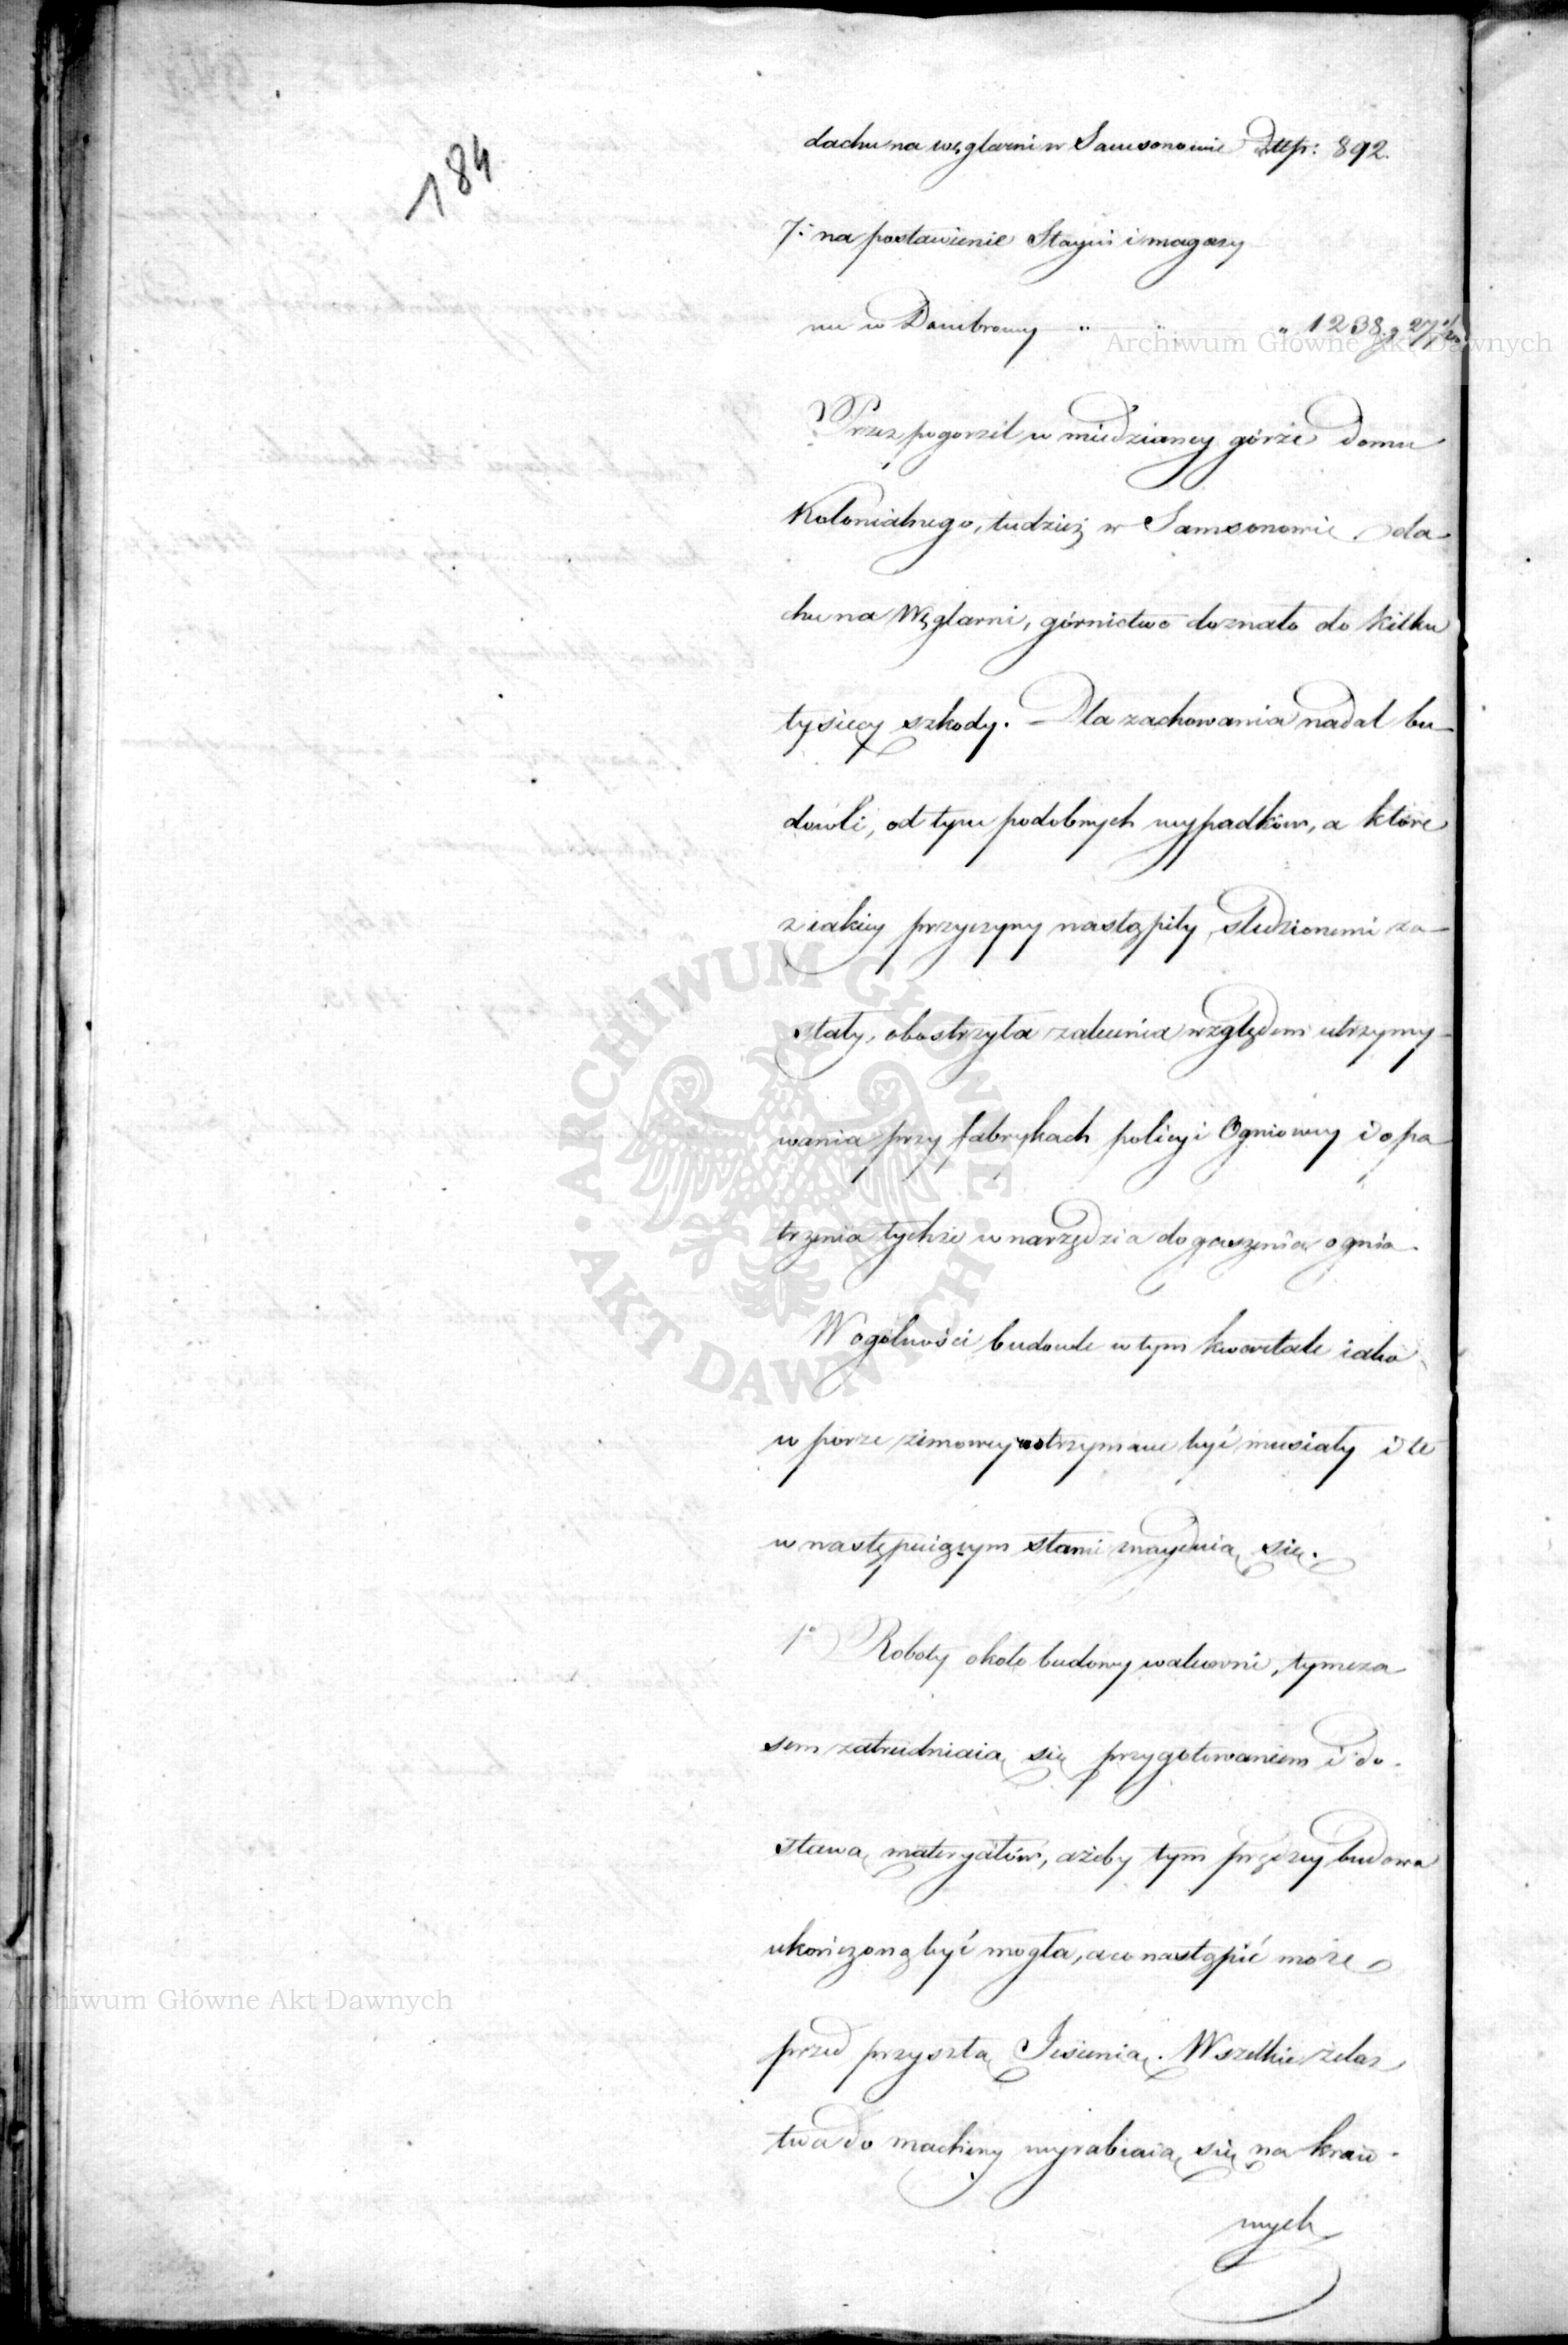 184
dachu na węglarni w Samsonowie Złtp: 892.
7.° na postawienie Stayni i magazy
nu w Dombrowy " " " 1238 g 27 1/2
Przez pogorzel w miedzianey górze domu
Kolonialnego, tudzież w Samsonowie da-
chu na Węglarni, górnictwo doznało do kilku
tysięcy szkody. Dla zachowania nadal bu-
dowli, od tym podobnych wypadków, a które
z iakiey przyczyny nastąpiły, śledzionemi zo-
stały, obostrzyła zalecenia względem utrzymy-
wania przy fabrykach policyi Ogniowey i opa
trzenia tychże w narzędzia do gaszenia ognia.
W ogólności budowle w tym kwartale iako
w porze zimowey wstrzymane być musiały i te
w następuiącym stanie znayduią się.
1° Roboty około budowy walcowni, tymcza
sem zatrudniaią się przygotowaniem i do-
stawą materyałów, ażeby tym prędzey budowa
ukończoną być mogła, a co nastąpić może
przed przyszłą Jesienią. Wszelkie żelaz
twa do machiny wyrabiaią się na kraio-
wych
Archiwum Główne Akt Dawnych
ARCHIWUM GŁÓWNE AKT DAWNYCH
Archiwum Główne Akt Dawnych